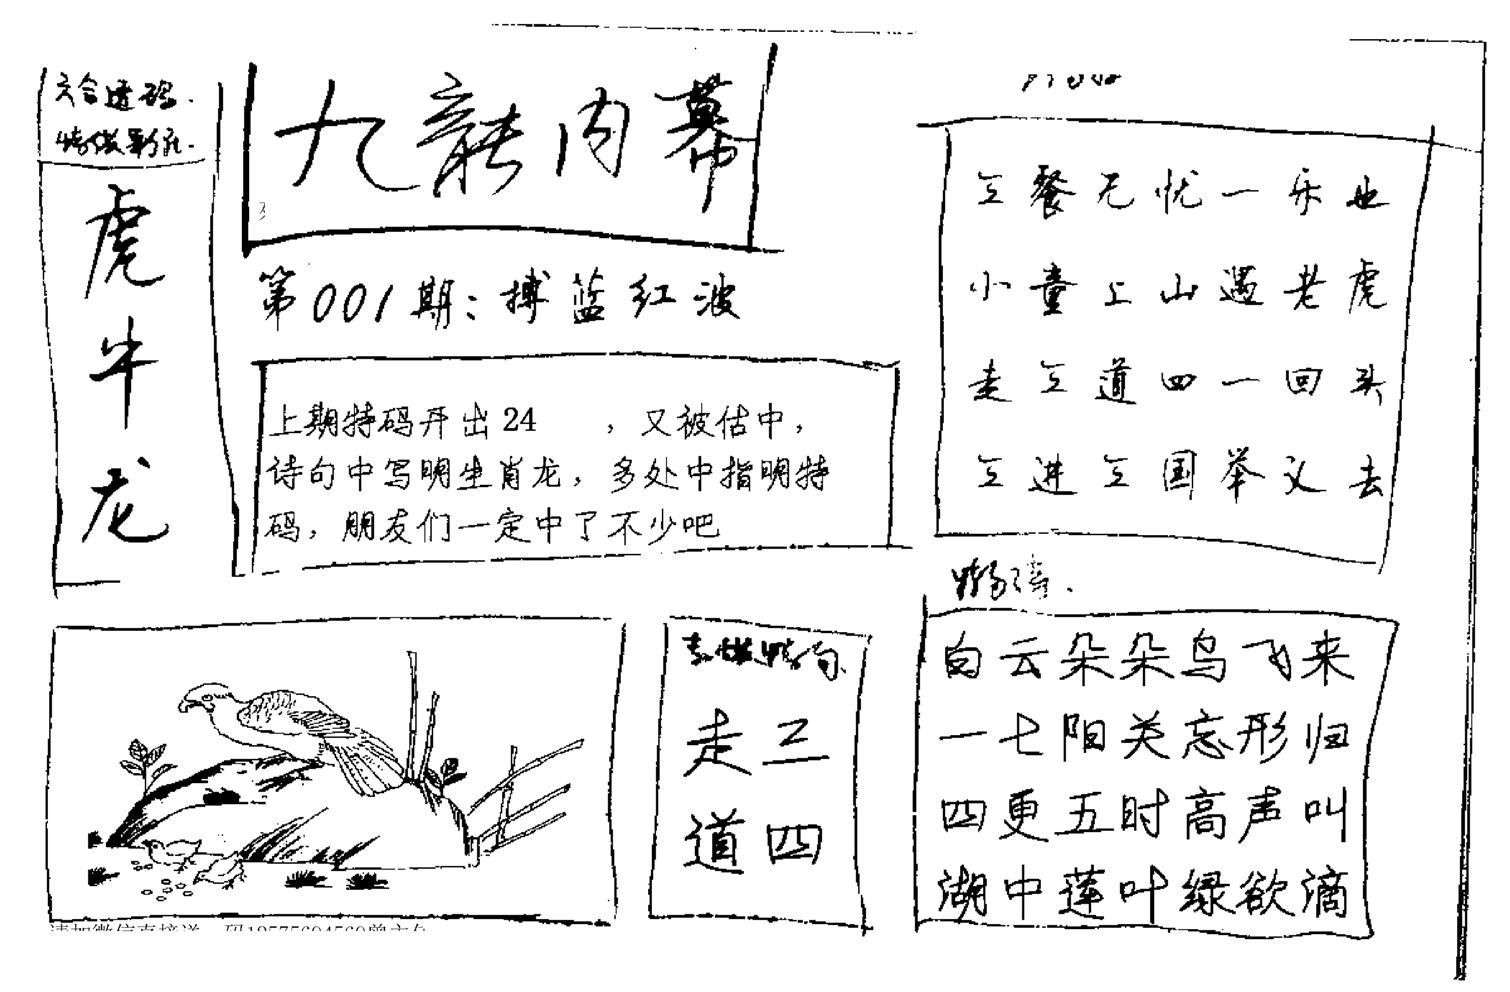 六合透码.
虎
牛
龙
九龍内幕
第001期：搏蓝红波
上期特码开出24 ，又被估中，
诗句中写明生肖龙，多处中指明特
码，朋友们一定中了不少吧
三餐无忧一乐也
小童上山遇老虎
走三道四一回头
三进三国举义去
白云朵朵鸟飞来
一七阳关忘形归
四更五时高声叫
湖中莲叶绿欲滴
走三
道四